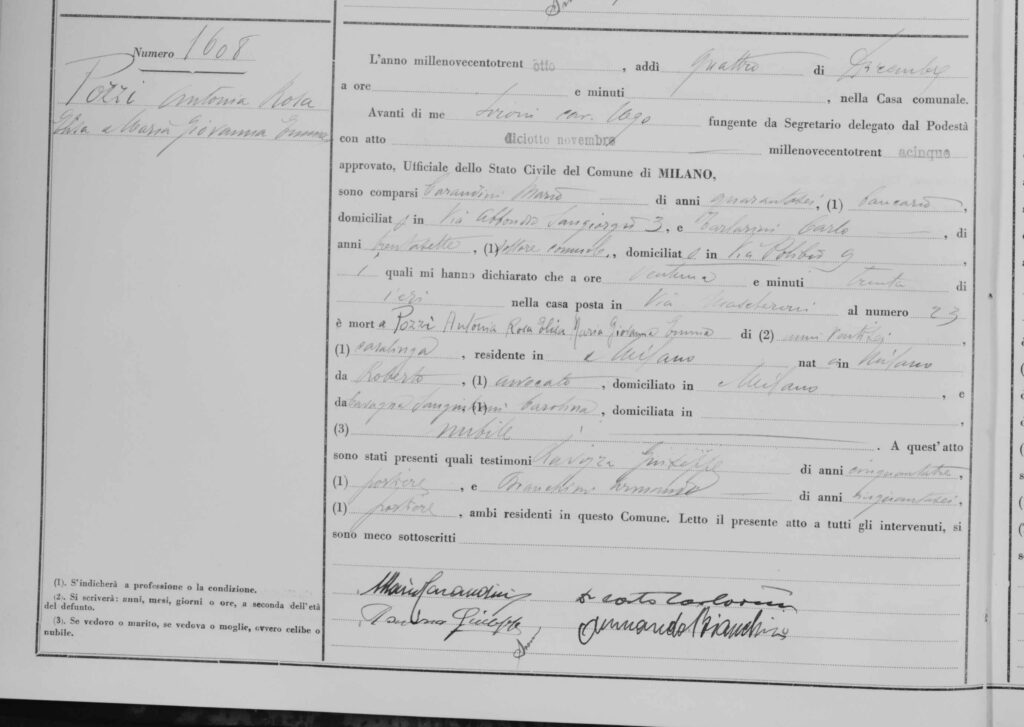 Numero 1608
Pozzi Antonia Rosa
Elisa Maria Giovanna Emma
L'anno millenovecentotrent otto, addì quattro di Dicembre
a ore e minuti , nella Casa comunale.
Avanti di me cav. Ugo fungente da Segretario delegato dal Podestà
con atto diciotto novembre millenovecentotrent acinque
approvato, Ufficiale dello Stato Civile del Comune di MILANO,
sono comparsi Carandini Mario di anni quarantasei, (1) bancario,
domiciliat o in Via Abbondio Sangiorgio 3, e Carlo , di
anni trentasette, (1) dottore comm., domiciliat o in Via Polibio 9
i quali mi hanno dichiarato che a ore ventuna e minuti trenta di
ieri nella casa posta in Via Mascheroni al numero 23
è mort a Pozzi Antonia Rosa Elisa Maria Giovanna Emma di (2) anni ventisei
(1) casalinga, residente in Milano nat a in Milano
da Roberto, (1) avvocato, domiciliato in Milano , e
da Cavagna Sangiuliani (1) Carolina, domiciliata in ,
(3) nubile . A quest'atto
sono stati presenti quali testimoni Giuseppe di anni cinquantatre,
(1) portiere, e Bianchini Armando di anni cinquantasei,
(1) portiere, ambi residenti in questo Comune. Letto il presente atto a tutti gli intervenuti, si
sono meco sottoscritti
Mario Carandini
Giuseppe
Armando Bianchini
(1). S'indicherà a professione o la condizione.
(2. Si scriverà: anni, mesi, giorni o ore, a seconda dell'età
del defunto.
(3). Se vedovo o marito, se vedova o moglie, ovvero celibe o
nubile.